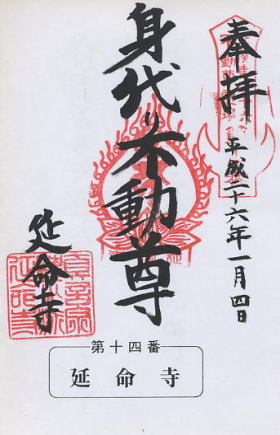 奉拝
平成二十六年一月四日
身代り不動尊
延命寺
第十四番
延命寺